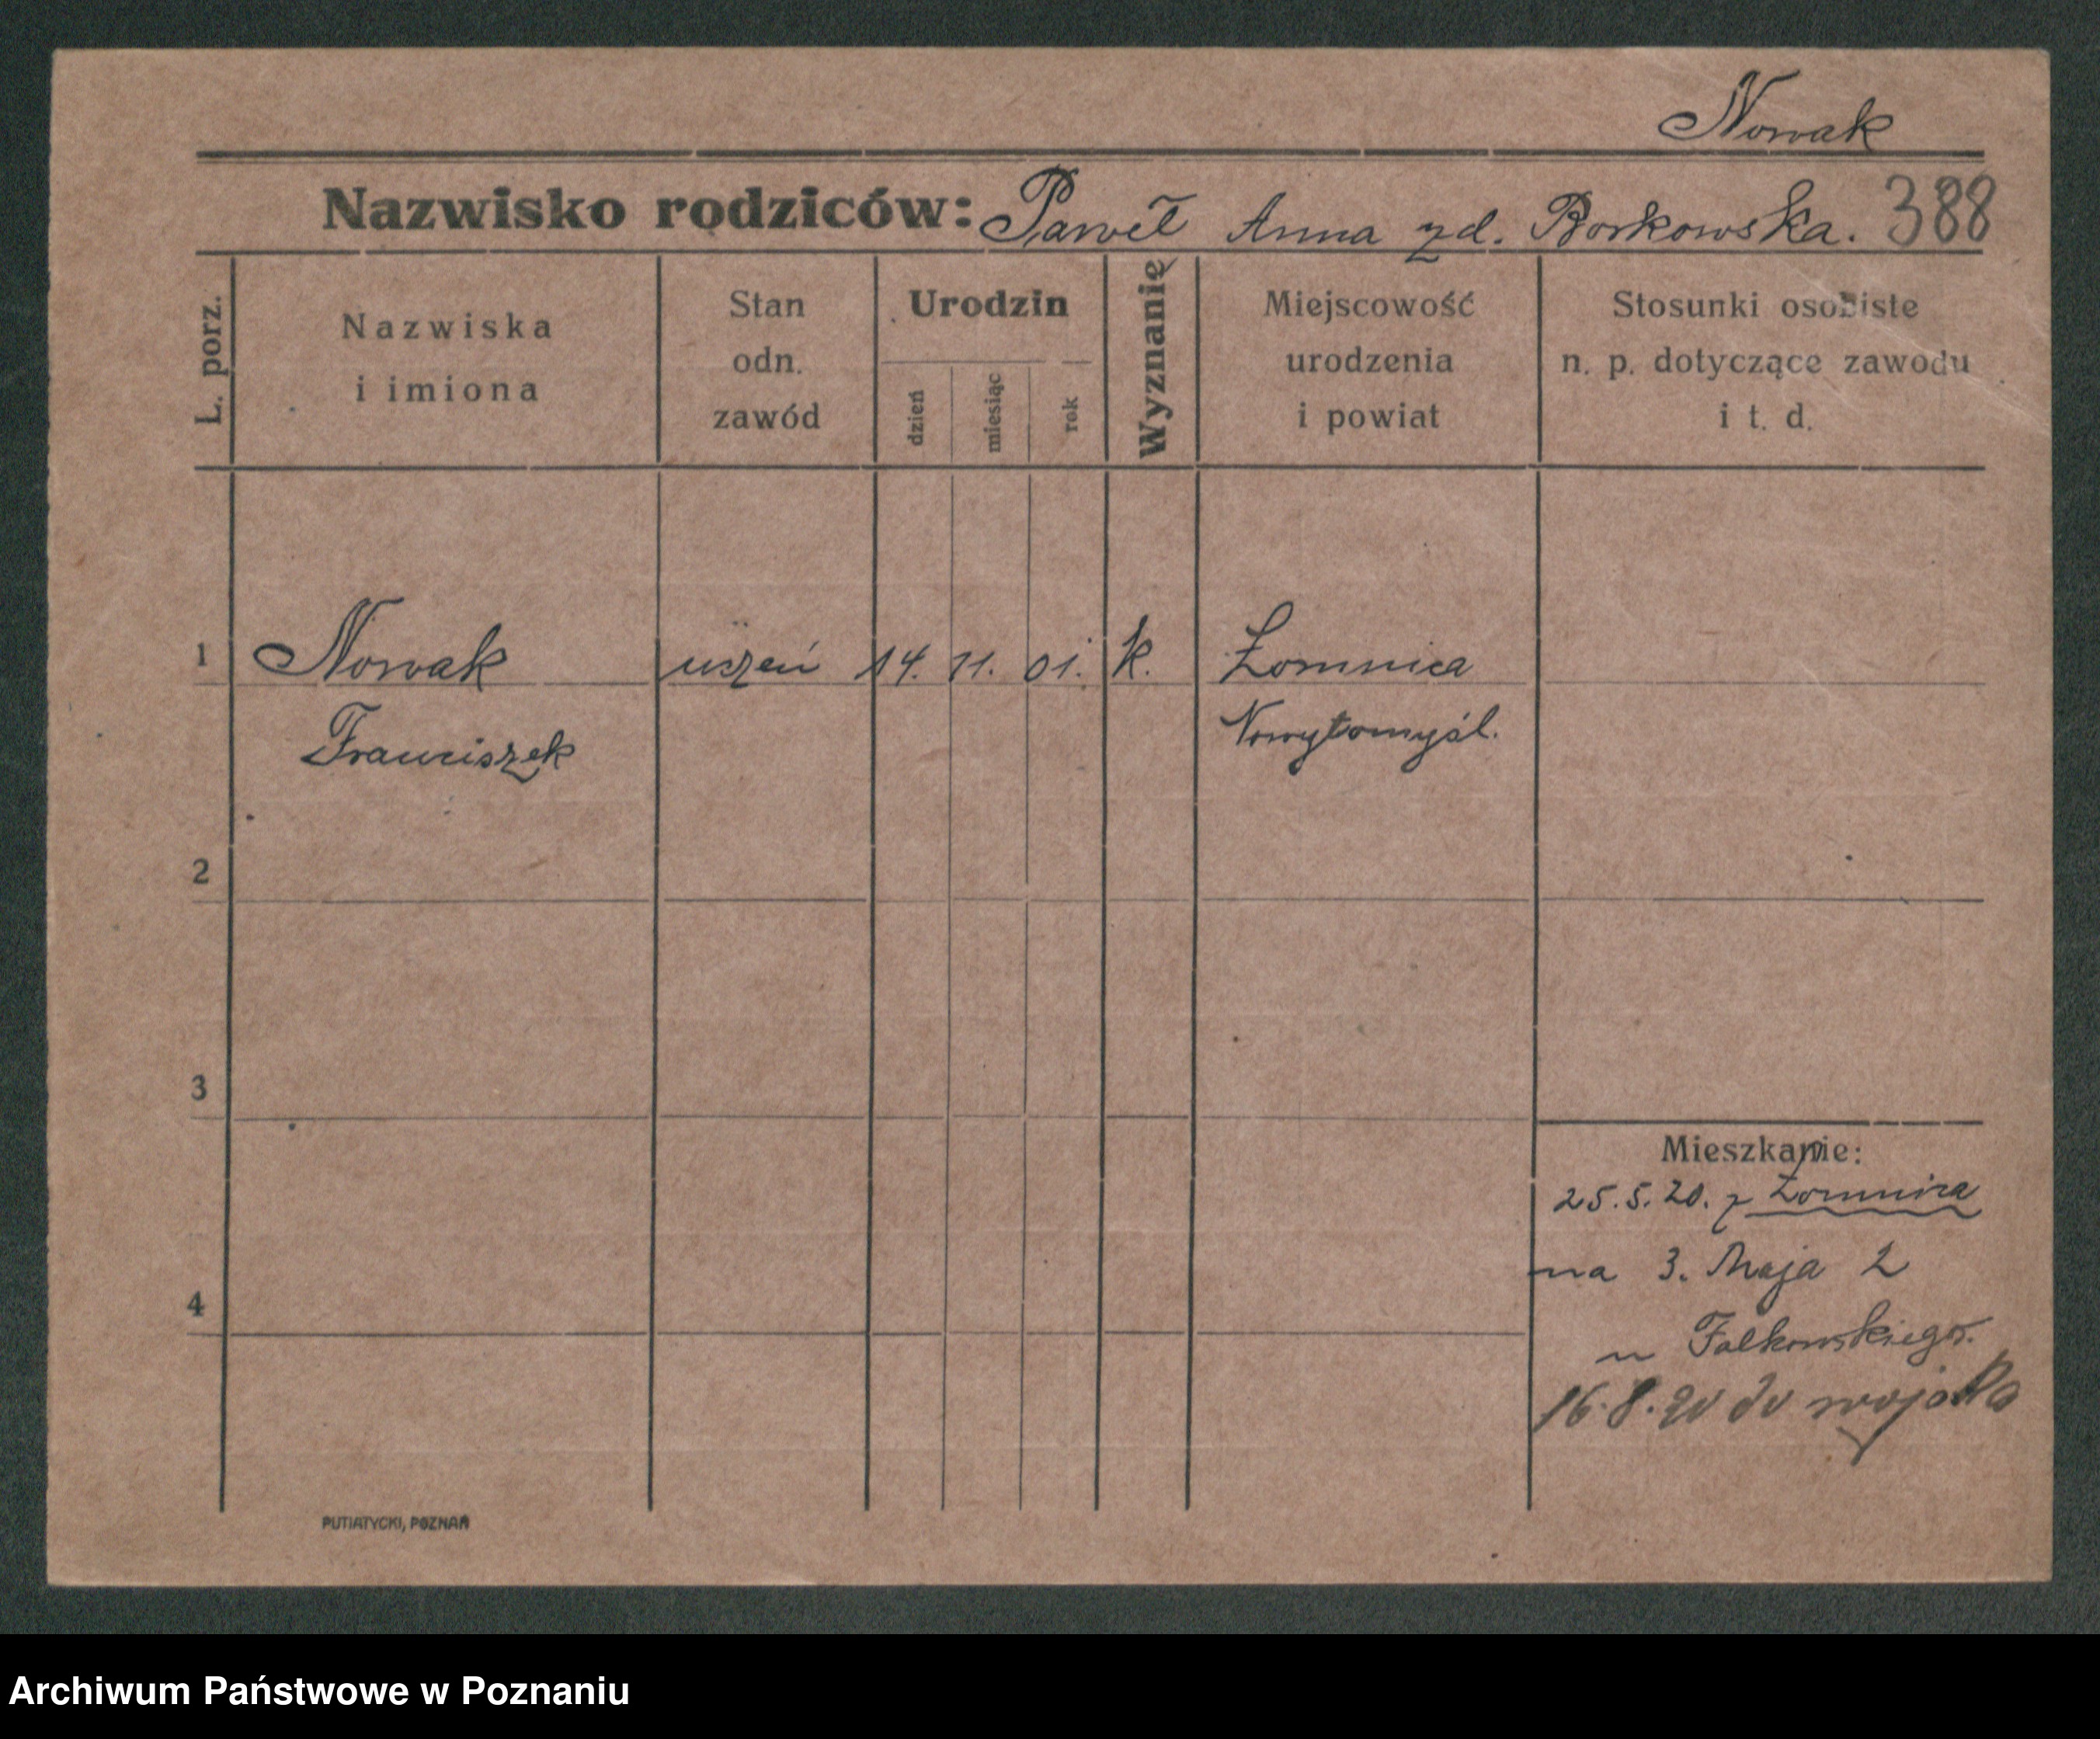 Nowak
Nazwisko rodziców: Paweł Anna zd. Borkowska. 388
L. porz.
Nazwiska
i imiona
Stan
odn.
zawód
Urodzin
dzień
miesiąc
rok
Wyznanie
Miejscowość
urodzenia
i powiat
Stosunki osobiste
n. p. dotyczące zawodu
i t. d.
1 Nowak uczeń 14. 11. 01. k. Łomnica
Franciszek Nowytomyśl.
2
3
4
Mieszkanie:
25.5.20. z Łomnica
na 3. Maja 2
u Falkowskiego.
16.8.20 do wojska
PUTIATYCKI, POZNAŃ
Archiwum Państwowe w Poznaniu